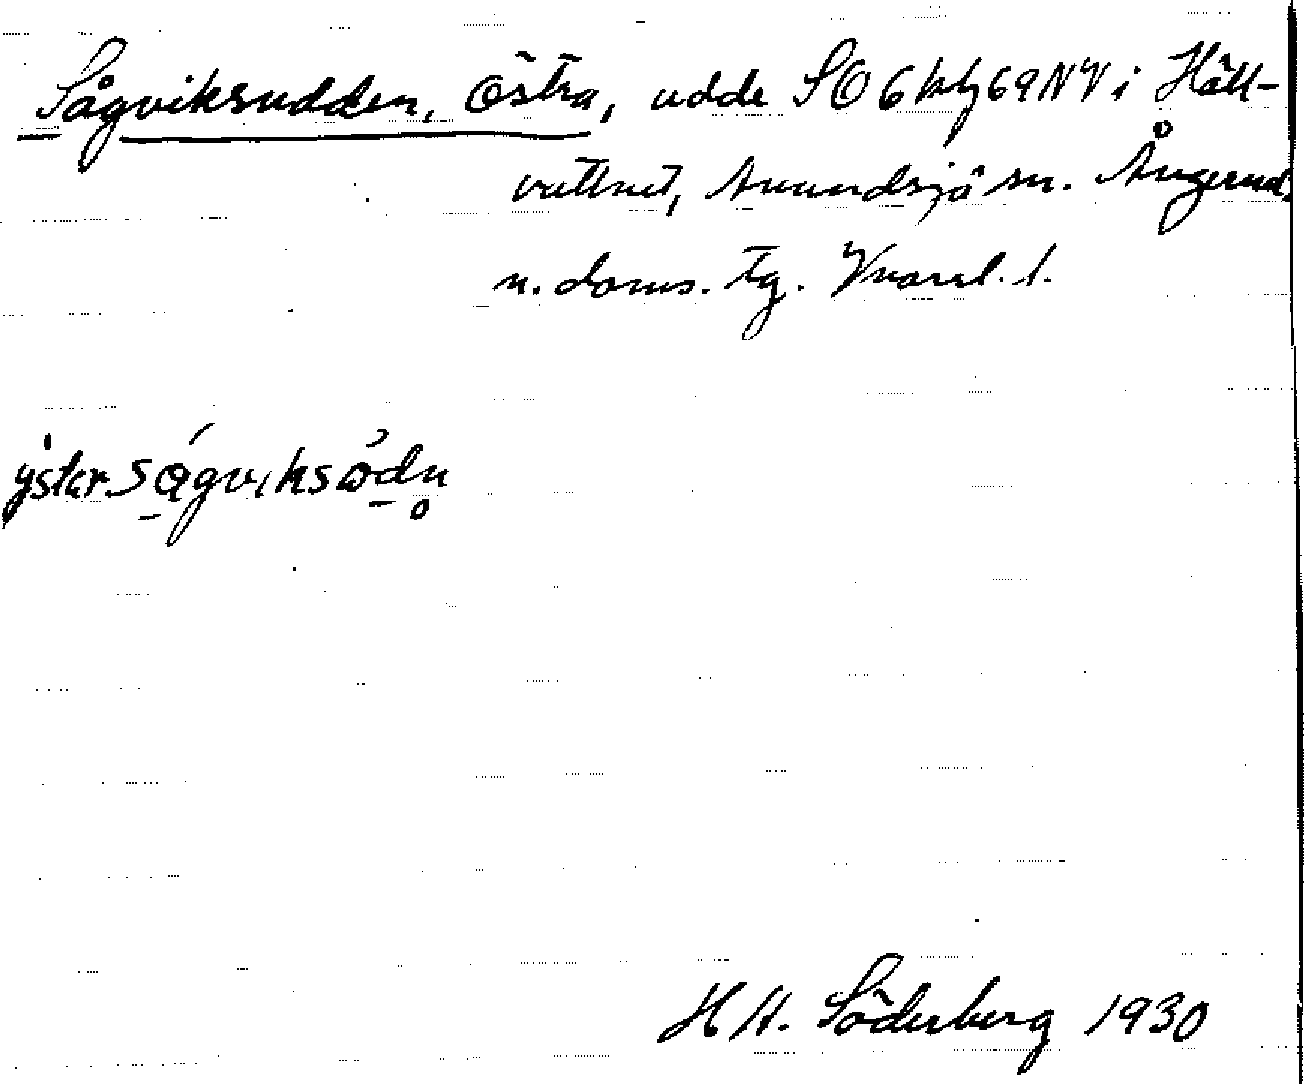 Sågviksudden, Östra, udde SO 6 kbl 69 NV i Häll-
vattnet, Anundsjö sn. Ångerml.
n. doms. tg. Kvarnl. 1.
yster sågviksödn
H A. Söderberg 1930